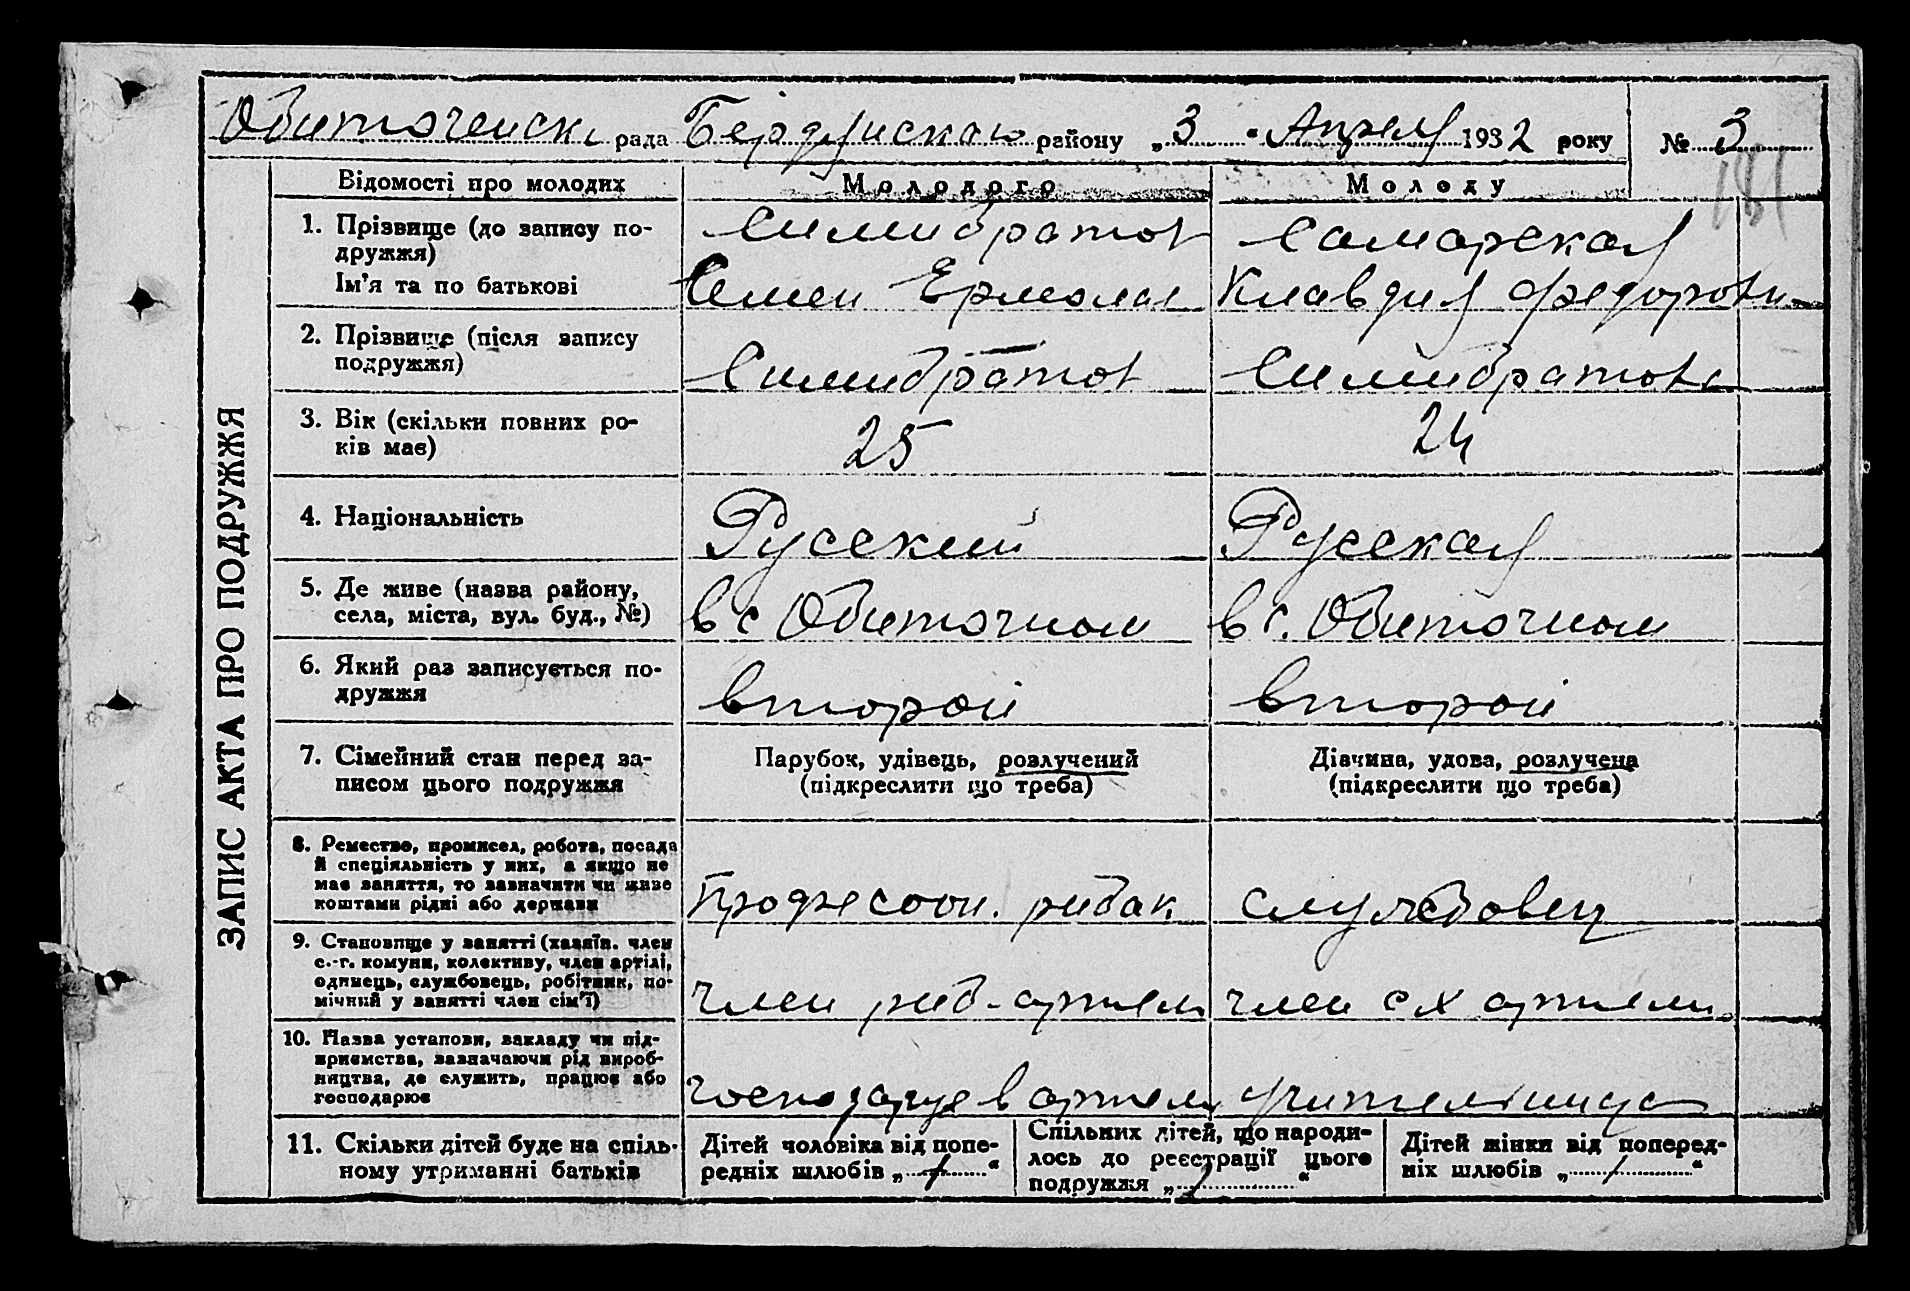 Обиточенск рада Бердянского району „3“ Апреля 1932 року № 3
181
ЗАПИС АКТА ПРО ПОДРУЖЖЯ
Відомості про молодих Молодого Молоду
1. Прізвище (до запису по-
дружжя)
Симибратов Самарская
Ім'я та по батькові
Семен Ермолае Клавдия Федоровн
2. Прізвище (після запису
подружжя)
Симибратов Симибратова
3. Вік (скільки повних ро-
ків має)
25 24
4. Національність
Русский Русская
5. Де живе (назва району,
села, міста, вул. буд., №)
в с Обиточном в с. Обиточном
6. Який раз записується по-
дружжя
второй второй
7. Сімейний стан перед за-
писом цього подружжя
Парубок, удівець, розлучений
(підкреслити що треба)
Дівчина, удова, розлучена
(підкреслити що треба)
8. Ремество, промисел, робота, посада
й спеціяльність у них, а якщо не
має заняття, то зазначити чи живе
коштами рідні або держави
Професион. рибак службовец
9. Становище у занятті (хазяїн. член
с.-г. комуни, колективу, член артілі,
одинець, службовець, робітник, по-
мічний у занятті член сім'ї)
член риб-артели член с х артели
10. Назва установи, закладу чи під-
приємства, зазначаючи рід вироб-
ництва, де служить, працює або
господарює
господарує в артели учительница
11. Скільки дітей буде на спіль-
ному утриманні батьків
Дітей чоловіка від попе-
редніх шлюбів „ 1 “
Спільних дітей, що народи-
лось до реєстрації цього
подружжя „ “
Дітей жінки від поперед-
ніх шлюбів „ 1 “